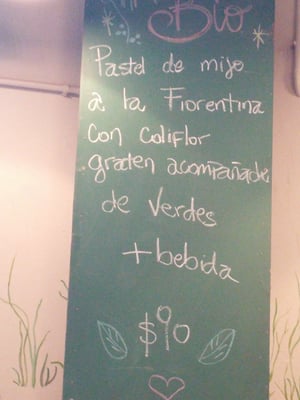 Bio
Pastel de mijo
a la Fiorentina
con coliflor
graten acompañado
de Verdes
+bebida
$90